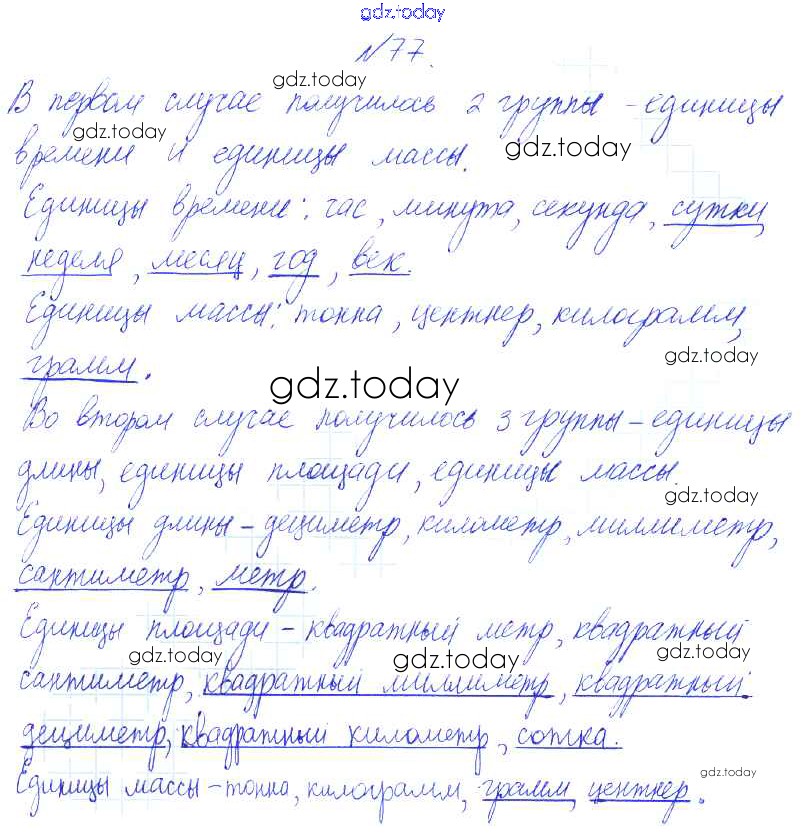 gdz.today
№77.
gdz.today
В первом случае получилось 2 группы - единицы
gdz.today
времени и единицы массы.
gdz.today
Единицы времени: час, минута, секунда, сутки,
неделя, месяц, год, век.
Единицы массы: тонна, центнер, килограмм,
gdz.today
грамм.
gdz.today
Во втором случае получилось 3 группы - единицы
длины, единицы площади, единицы массы.
gdz.today
Единицы длины - дециметр, километр, миллиметр,
сантиметр, метр.
Единицы площади - квадратный метр, квадратный
gdz.today gdz.today gdz.today
сантиметр, квадратный миллиметр, квадратный
дециметр, квадратный километр, сотка.
gdz.today
Единицы массы - тонна, килограмм, грамм, центнер.